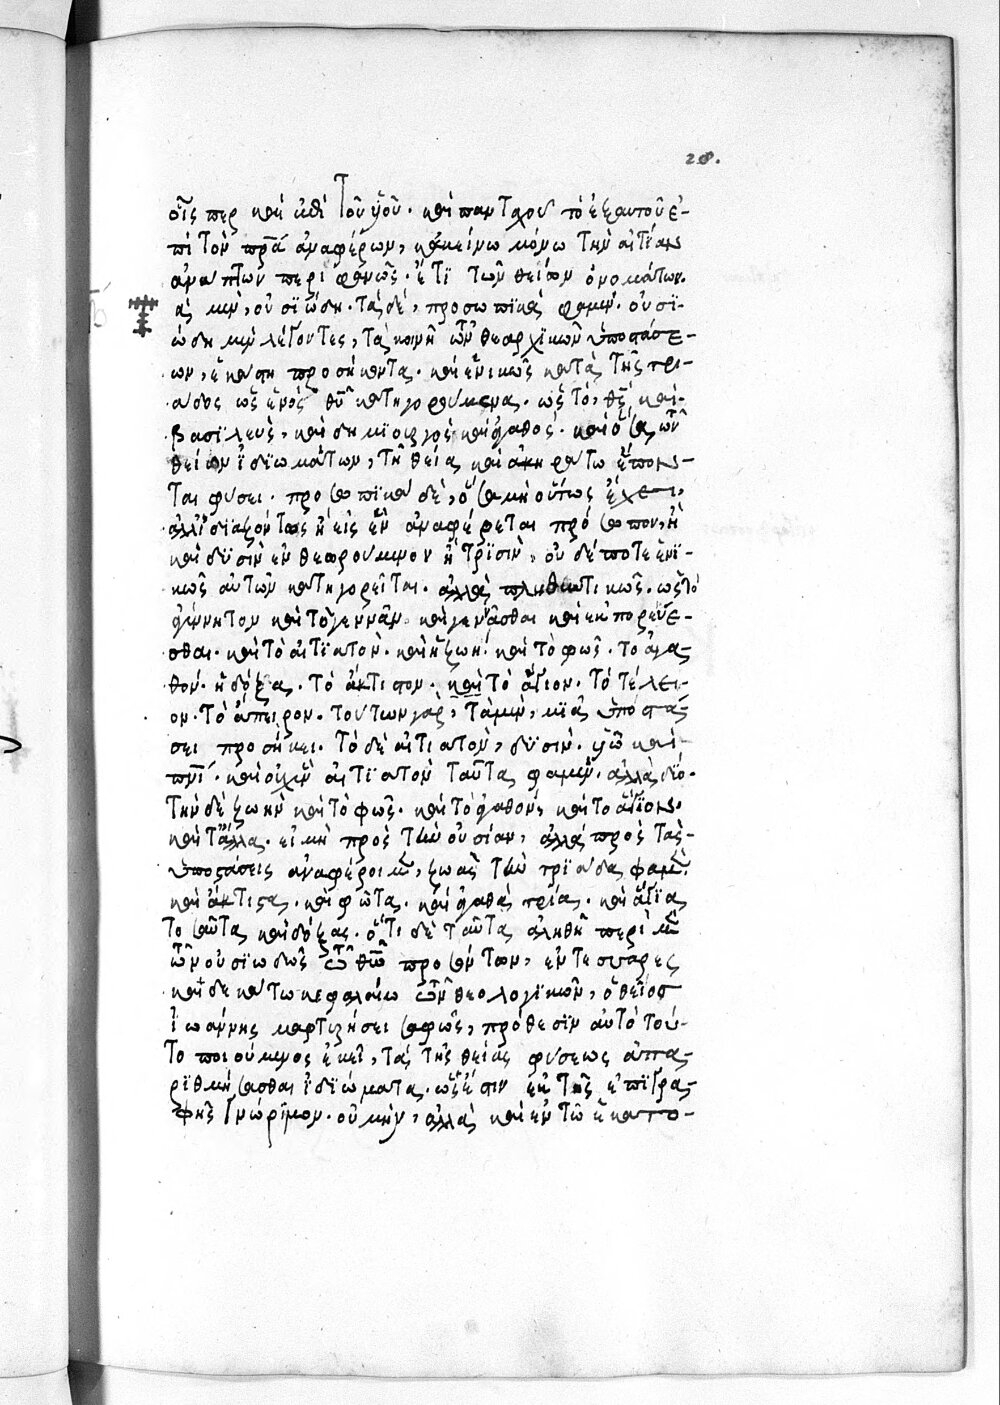 28.
οἷς περ καὶ ἐπὶ τοῦ υἱοῦ. καὶ πανταχοῦ τὸ ἐξ αὐτοῦ ἐ-
πὶ τὸν πρα ἀναφέρων, κἀκείνω μόνω τὴν αἰτίαν
ἀνάπτων περιφανῶς. ἔτι τῶν θείων ὀνομάτων.
ἃς μὲν, οὐσϊώδη. τὰς δὲ, προσωπϊκὰς φαμὲν. οὐσϊ-
ώδη μὲν λέγοντες, τὰ κοινῆ τῶν θεαρχϊκῶν ὑποστάσε-
ων, ἑκάστη προσήκοντα. καὶ ἑνικῶς κατὰ τῆς τρι-
άδος ὡς ἑνὸς θυ κατηγορούμενα. ὡς τὸ, θς καὶ
βασϊλεὺς, καὶ δημϊουργὸς καὶ ἀγαθός. καὶ ὅσα τῶν
θείων ἰδϊωμάτων, τῆ θεία καὶ ἀκηράτω ἕπον-
ται φύσει. προσωπϊκὰ δὲ, ὅσα μὴ οὕτως ἔχει,
ἀλλ' ἰδϊαζόντως ἢ εἰς ἓν ἀναφέρεται πρόσωπον, ἢ
καὶ δϋσὶν ἐνθεωρούμενον ἢ τρϊσὶν, οὐδέποτε ἑνϊ-
κῶς αὐτῶν κατηγορεῖται. ἀλλὰ πληθυντικῶς. ὡς τὸ
ἀγέννητον καὶ τὸ γεννᾶν. καὶ γεννᾶσθαι καὶ ἐκπορεύε-
σθαι. καὶ τὸ αἰτϊατόν. καὶ ἡ ζωή. καὶ τὸ φῶς. τὸ ἀγα-
θόν. ἡ δόξα. τὸ ἄκτιστον. καὶ τὸ ἅγιον. τὸ τέλει-
ον. τὸ ἄπειρον. τούτων γὰρ, τὰ μὲν, μϊᾶ ὑποστά-
σει προσήκει. τὸ δὲ αἰτιατὸν, δϋσὶν. υἱῶ καὶ
πνι. καὶ οὐχ ἓν αἰτϊατὸν ταῦτα φαμὲν. ἀλλὰ δύο.
τὴν δὲ ζωὴν καὶ τὸ φῶς. καὶ τὸ ἀγαθὸν, καὶ τὸ ἅγϊον.
καὶ τἄλλα. εἰ μὴ πρὸς τὴν οὐσίαν, ἀλλὰ πρὸς τὰς
ὑποστάσεις ἀναφέροιμεν, ζωὰς τὴν τρϊάδα φαμέν.
καὶ ἄκτιστα. καὶ φῶτα. καὶ ἀγαθὰ τρία. καὶ ἅγϊα
τοσαῦτα καὶ δόξας. ὅτι δὲ ταῦτα ἀληθῆ περὶ μὲν
τῶν οὐσϊωδῶς τῶ θῶ προσόντων, ἐν τεσσάρες
καὶ δεκάτω κεφαλαίω τῶν θεολογϊκῶν, ὁ θεῖος
ἰωάννης μαρτυρήσει σαφῶς, πρόθεσϊν αὐτὸ τοῦ-
το ποιούμενος ἐκεῖ, τὰ τῆς θείας φύσεως ἀπα-
ρϊθμήσασθαι ἰδϊώματα. ὡς ἔστιν ἐκ τῆς ἐπϊγρα-
φῆς γνώριμον. οὐ μὴν, ἀλλὰ καὶ ἐν τῶ ἑκατο-